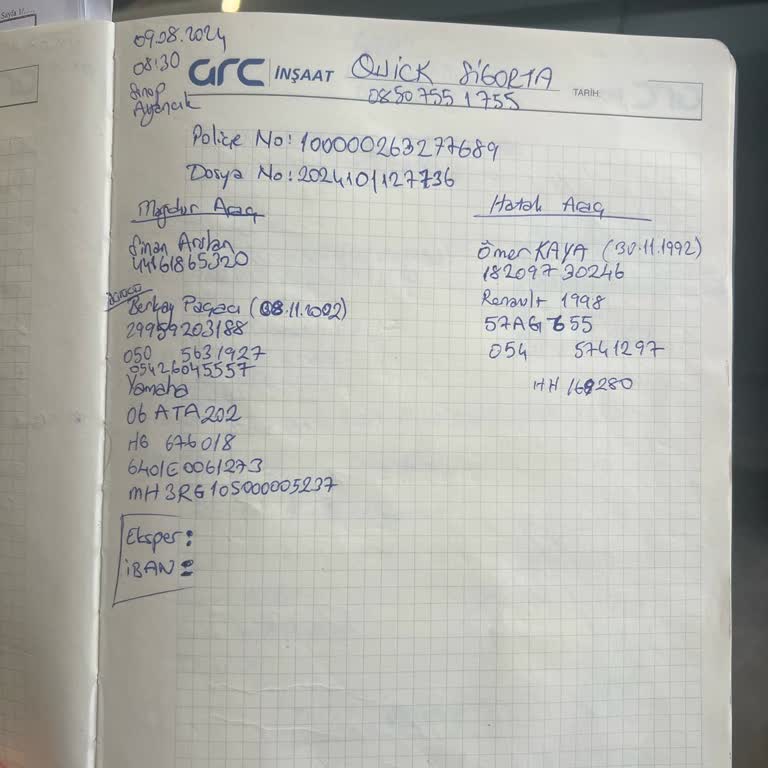 Sayfa 1/
09.08.2024
08:30
Sinop
Ayancık
arc İNŞAAT
QUİCK SİGORTA
0850 755 1755
TARİH:
Poliçe No: 100000263277689
Dosya No: 2024101127736
Mağdur Araç
Sinan Arslan
44161865320
Berkay Paçacı (08.11.2002)
29959203188
050 5631927
05426045557
Yamaha
06 ATA 202
HG 676018
6401E0061273
MH3RG105000005237
Eksper:
İBAN:
Hatalı Araç
Ömer KAYA (30.11.1992)
18209730246
Renault 1998
57AG 655
054 5741297
HH 169280